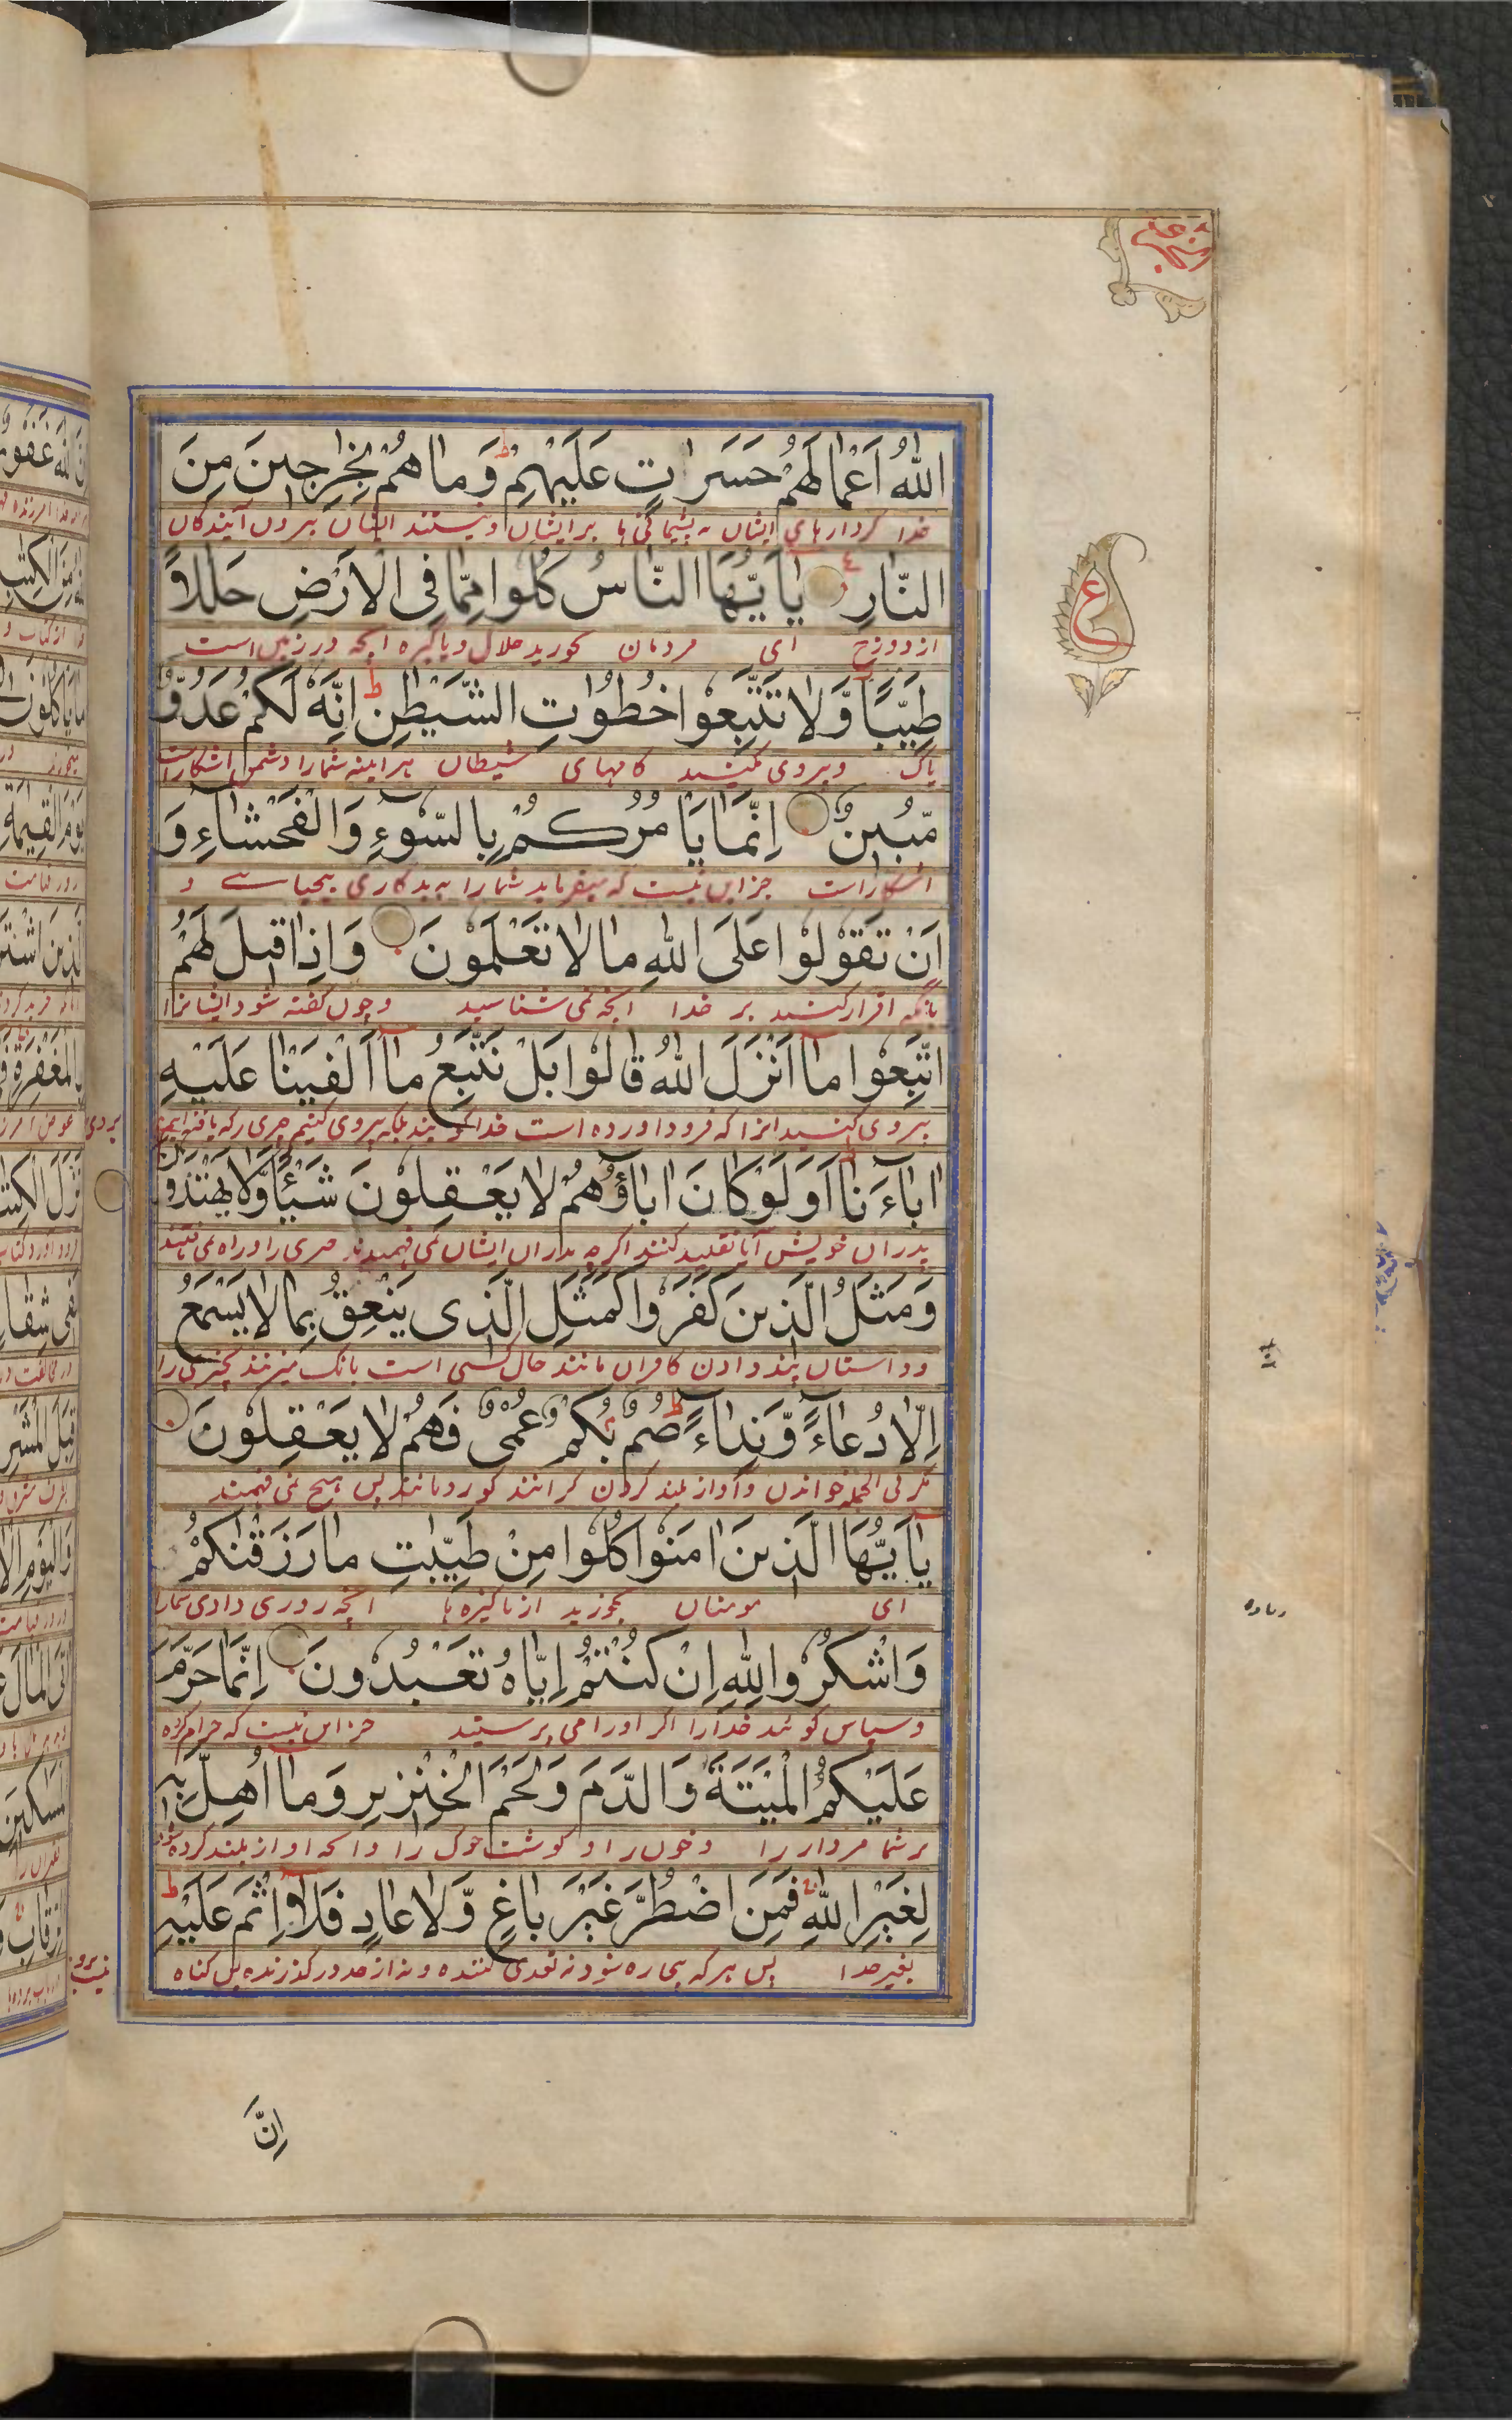 اللهُ اَعْمَالَهُمْ حَسَرَاتٍ عَلَيْهِمْ ط وَمَا هُمْ بِخٰرِجِينَ مِنَ
خدا کردارهای ایشان به پشیمانی ها بر ایشان و نیستند ایشان بیرون آیندگان
النَّارِ يٰاَيُّهَا النَّاسُ كُلُوا مِمَّا فِى الْاَرْضِ حَلٰلًا
از دوزخ ای مردمان بخورید حلال و پاکیزه انچه در زمین است
طَيِّبًا وَّلَا تَتَّبِعُوا خُطُوٰتِ الشَّيْطٰنِ ط اِنَّهُ لَكُمْ عَدُوٌّ
پاک و پیروی مکنید کامهای شیطان هر اینه شما را دشمن اشکاراست
مُّبِينٌ اِنَّمَا يَأْمُرُكُمْ بِالسُّوءِ وَالْفَحْشَاءِ وَ
اشکاراست جز این نیست که میفرماید شما را به بدکاری بیحیاسے و
اَنْ تَقُولُوْا عَلَى اللهِ مَا لَا تَعْلَمُونَ وَاِذَا قِيلَ لَهُمُ
بانکه اقرار کنید بر خدا انچه نمی شناسید و چون کفته شود ایشانرا
اتَّبِعُوا مَا اَنْزَلَ اللهُ قَالُوْا بَلْ نَتَّبِعُ مَا اَلْفَيْنَا عَلَيْهِ
پیروی کنید انرا که فرود اورده است خدا کویند بلکه پیروی کنیم چیزی را که یافته ایم
اٰبَاءَنَا اَوَلَوْ كَانَ اٰبَاؤُهُمْ لَا يَعْقِلُونَ شَيْئًا وَّلَا يَهْتَدُونَ
پدران خویش آیا تقلید کنند اکر چه پدران ایشان نمی فهمیدند چیزی را و راه نمی یافتند
وَمَثَلُ الَّذِينَ كَفَرُوا كَمَثَلِ الَّذِى يَنْعِقُ بِمَا لَا يَسْمَعُ
و داستان پند دادن کافران مانند حال کسی است بانک میزند چیزی را
اِلَّا دُعَاءً وَّنِدَاءً ط صُمٌّ بُكْمٌ عُمْىٌ فَهُمْ لَا يَعْقِلُونَ
مکر فی الجمله خواندن و آواز بلند کردن کرانند کورومانند پس هیچ نمی فهمند
يٰاَيُّهَا الَّذِينَ اٰمَنُوا كُلُوا مِنْ طَيِّبٰتِ مَا رَزَقْنٰكُمْ
ای مومنان بخورید از پاکیزه ها انچه روزی دادی شمارا
وَاشْكُرُوا لِلهِ اِنْ كُنْتُمْ اِيَّاهُ تَعْبُدُونَ اِنَّمَا حَرَّمَ
و سپاس کوئید خدا را اکر او را می پرستید جز این نیست که حرام کرده
عَلَيْكُمُ الْمَيْتَةَ وَالدَّمَ وَلَحْمَ الْخِنْزِيرِ وَمَا اُهِلَّ بِهِ
بر شما مردار را و خون را و کوشت خوک را و انچه اواز بلند کرده شود
لِغَيْرِ اللهِ فَمَنِ اضْطُرَّ غَيْرَ بَاغٍ وَّلَا عَادٍ فَلَا اِثْمَ عَلَيْهِ ط
بغیر خدا پس هر که بیچاره شود نه تعدی کننده و نه از حد در کذرنده پس کناه
ع
اِنَّ